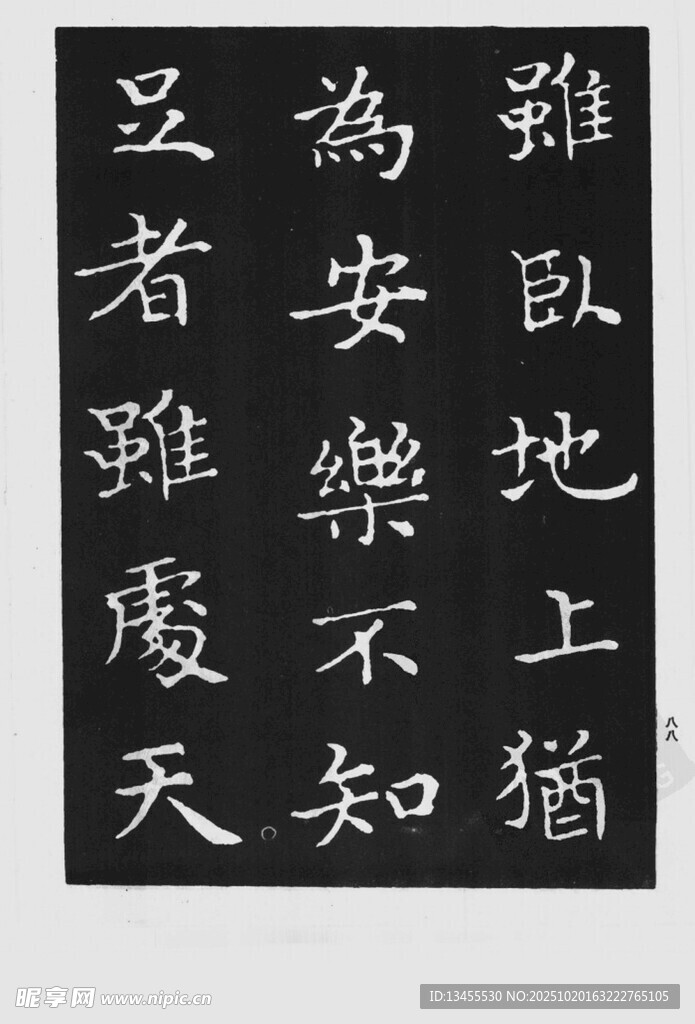 雖臥地上猶
為安樂不知
足者雖處天
八八
昵享网 www.nipic.cn
ID:13455530 NO:20251020163222765105